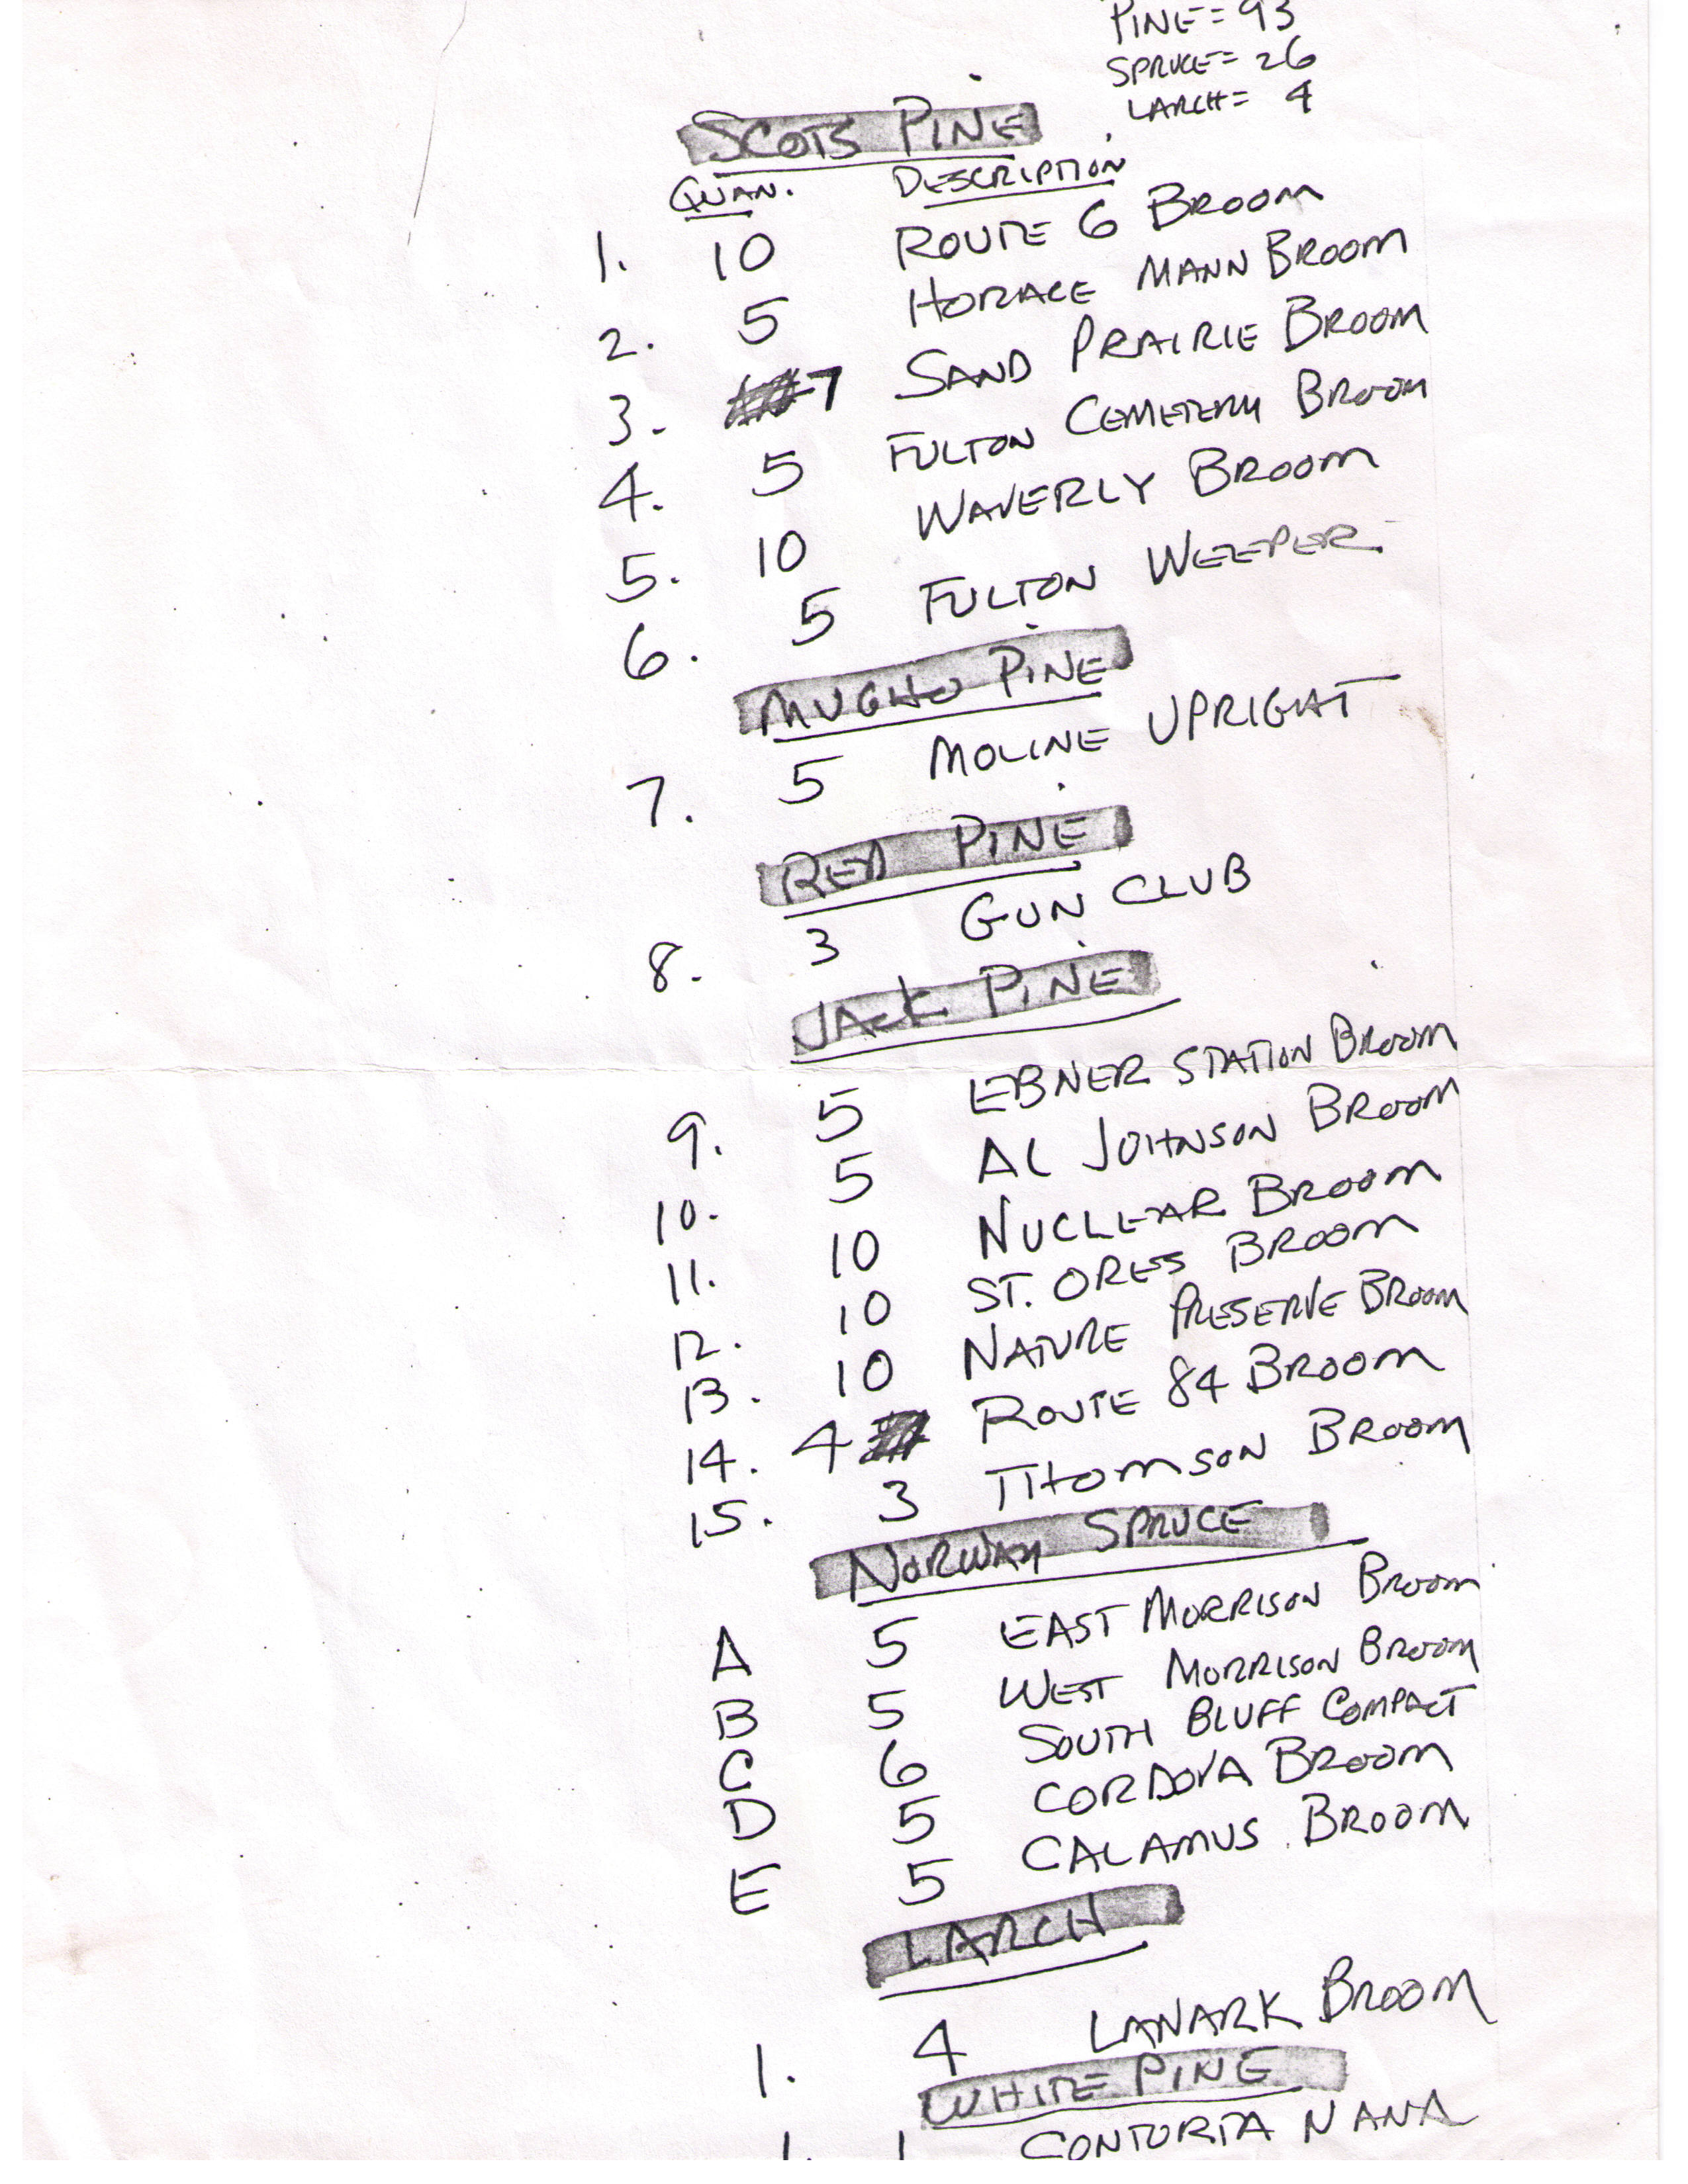 PINE = 93
SPRUCE = 26
LARCH = 4
SCOTS PINE
QUAN. DESCRIPTION
1. 10 ROUTE 6 BROOM
2. 5 HORACE MANN BROOM
3. 7 SAND PRAIRIE BROOM
4. 5 FULTON CEMETERY BROOM
5. 10 WAVERLY BROOM
6. 5 FULTON WEEPER
MUGHO PINE
7. 5 MOLINE UPRIGHT
RED PINE
8. 3 GUN CLUB
JACK PINE
9. 5 EBNER STATION BROOM
10. 5 AL JOHNSON BROOM
11. 10 NUCLEAR BROOM
12. 10 ST. ORES BROOM
13. 10 NATURE PRESERVE BROOM
14. 4 ROUTE 84 BROOM
15. 3 THOMSON BROOM
NORWAY SPRUCE
A 5 EAST MORRISON BROOM
B 5 WEST MORRISON BROOM
C 6 SOUTH BLUFF COMPACT
D 5 CORDOVA BROOM
E 5 CALAMUS BROOM
LARCH
1. 4 LANARK BROOM
WHITE PINE
1. 1 CONTORTA NANA